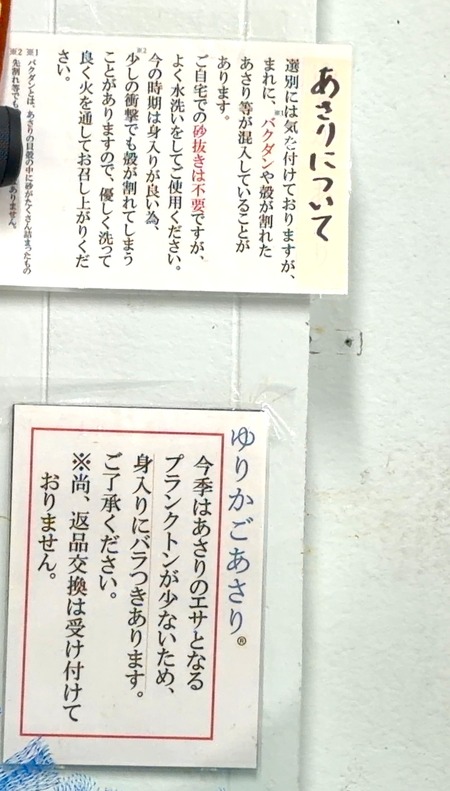 あさりについて
選別には気を付けておりますが、
まれに、※1バクダンや殻が割れた
あさり等が混入していることが
あります。
ご自宅での砂抜きは不要ですが、
よく水洗いをしてご使用ください。
今の時期は身入りが良い為、
※2少しの衝撃でも殻が割れてしまう
ことがありますので、優しく洗って
良く火を通してお召し上がりくだ
さい。
※1 バクダンとは、あさりの貝殻の中に砂がたくさん詰まったもの
※2 先割れ等でも
ありません。
ゆりかごあさり®
今季はあさりのエサとなる
プランクトンが少ないため、
身入りにバラつきあります。
ご了承ください。
※尚、返品交換は受け付けて
おりません。